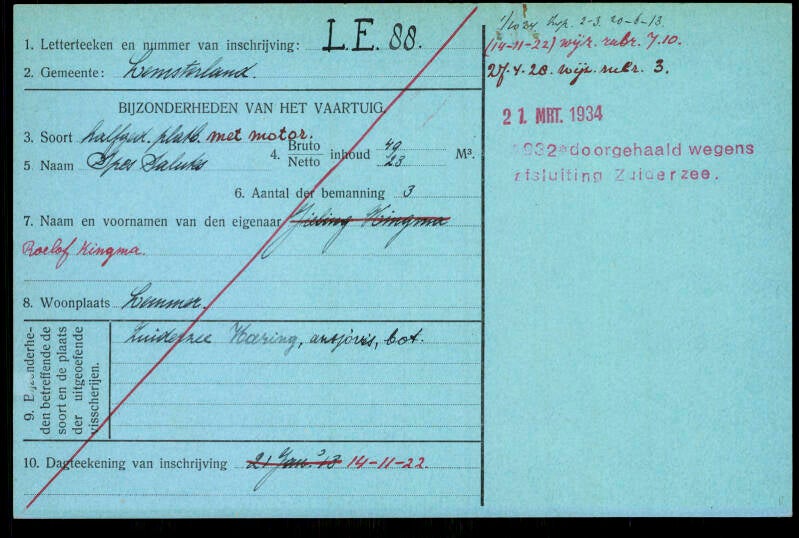 1. Letterteeken en nummer van inschrijving: L.E. 88.
2. Gemeente: Lemsterland.
BIJZONDERHEDEN VAN HET VAARTUIG.
3. Soort halfged. platb. met motor.
4. Bruto 49
Netto inhoud 23 M³.
5 Naam Spes Salutis
6. Aantal der bemanning 3
7. Naam en voornamen van den eigenaar Kingma
Roelof Kingma.
8. Woonplaats Lemmer.
9. Bijzonderhe-
den betreffende de
soort en de plaats
der uitgeoefende
visscherijen.
Zuiderzee Haring, ansjovis, bot.
10. Dagteekening van inschrijving 21 Jan. '13 14-11-22.
2-3. 20-6-13
(14-11-22) wijz. rubr. 7.10.
27.4.28. wijz. rubr. 3.
21 MRT. 1934
1932 doorgehaald wegens
afsluiting Zuiderzee.